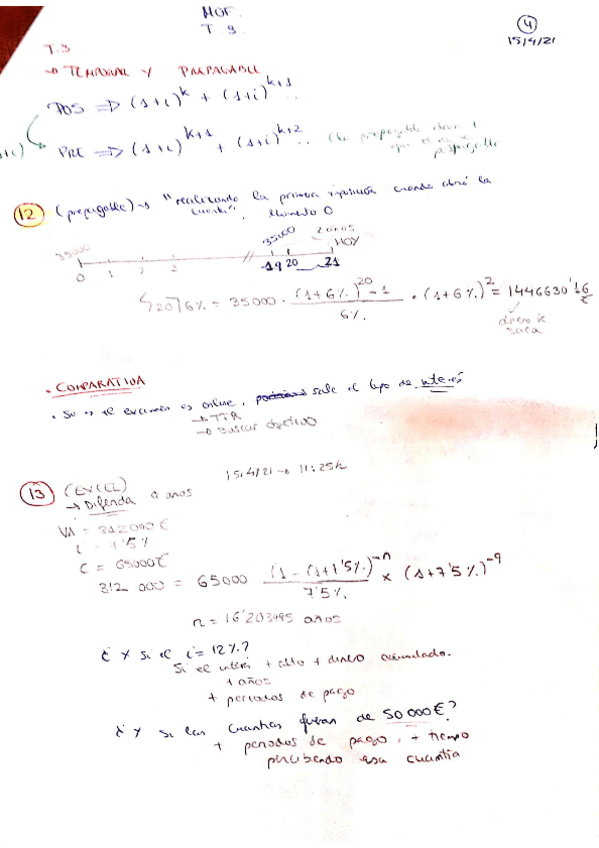 MOF.
T. 3.
4
15/4/21
T.3
→ TEMPORAL Y PREPAGABLE
POS => (1+i)^k + (1+i)^k+1 ..
PRE => (1+i)^k+1 + (1+i)^k+2 ..
12 (prepagable) → "realizando la primera imposición cuando abrió la
cuenta". Momento 0
35000 2 años
35000 HOY
0 1 2 3 // 19 20 21
S20⌉6% = 35000 · (1+6%)^20 - 1 / 6% · (1+6%)^2 = 1446630'16 €
dinero q
saca
• COMPARATIVA
• Si es el examen es online, sale el tipo de interés
→ TIR
→ Buscar objetivo
15/4/21 → 11:25h
13 (EXCEL)
→ Diferida 9 años
VA = 312 000 €
i = 7'5 %
C = 65000€
312 000 = 65000 (1 - (1+7'5%)^-n / 7'5% × (1+7'5%)^-9
n = 16'203995 años
¿Y si el i = 12%?
Si el interés + alto + dinero acumulado.
+ años
+ periodos de pago
¿Y si las cuantías fueran de 50 000€?
+ periodos de pago, + tiempo
percibiendo esa cuantía